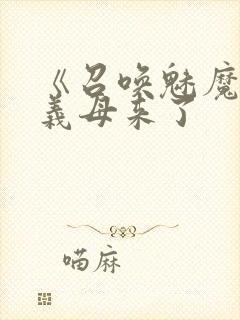 《召唤魅魔
義母来了
喵麻